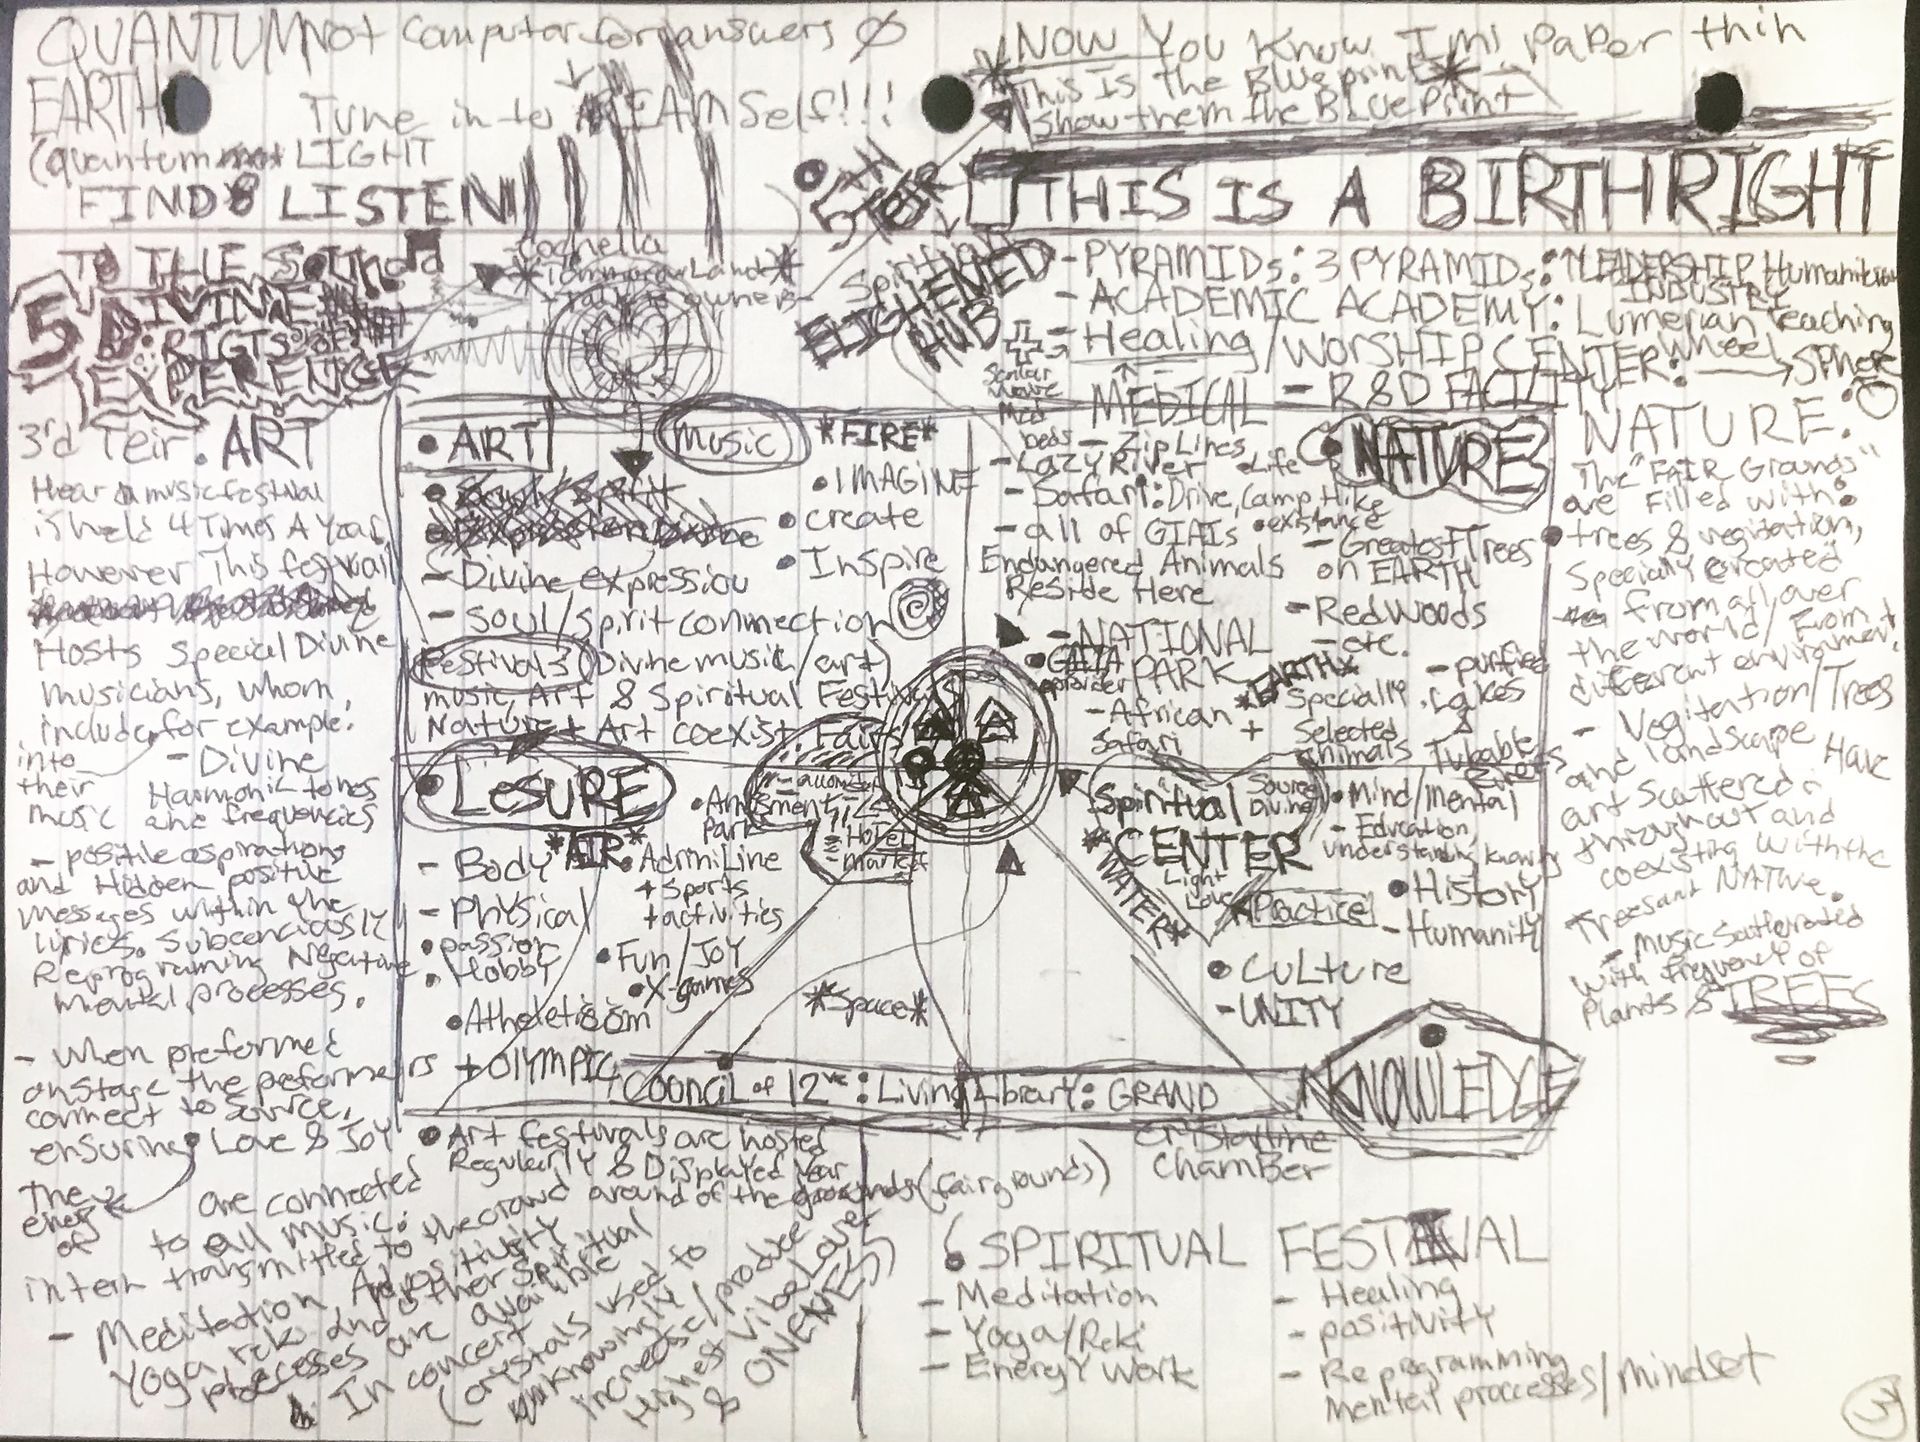 QUANTUM not computer for answers
EARTH
Tune in to DREAM Self!!!
(quantum LIGHT
FIND & LISTEN
TO THE SOUND
5D DIVINE
RIGTS OF
EXPERENCE
*NOW You Know Im! PaPer thin
This Is The Blueprint*
Show them the BLuePrint
5TH TEIR
THIS IS A BIRTHRIGHT
Coachella
*Tommorow Land*
talk to owners
Spiritual
ELIGHTENED
HUB
- PYRAMIDS: 3 PYRAMIDS: LEADERSHIP Humanitarian
INDUSTRY
- ACADEMIC ACADEMY: Lumerian teaching
- Healing/WORSHIP CENTER: Wheel → SPHERE
- R&D FACILITY
Scalar
Wave
Med
beds
MEDICAL
- ZipLines
- LAZY River
- Safari: Drive, Camp, Hike
- all of GIAIs
Endangered Animals
Reside Here
- NATIONAL
PARK
GAIA
provider
- African
Safari
• Life
• existance
NATURE
- Greatest Trees
on EARTH
- RedWoods
- etc.
*EARTH*
+ Specially
Selected
animals
- purified
Lakes
&
Tubable
Rivers
3rd Teir: ART
Hear a music festival
is held 4 Times A Year,
However This festivail
Hosts Special Divine
musicians, whom
include, for example:
into
their
music
- Divine
Harmonic tones
and frequencies
- positie aspirations
and Hidden positive
messages within the
lyrics. Subconciously
Reprograming Negative
mental processes.
- When preformed
on Stage the preformers
connect to Source,
ensuring Love & Joy
The
energy
of
are connected
to all music.
intern transmitted to the crowd
- Meditation, Ad positivity
Yoga, reki and other Spiritual
processes are availible
In concert
(crystals used to
unknowingly
increase/produce
Highest Vibe Love
& ONENESS)
• ART
Music
*FIRE*
• IMAGINE
• create
• Inspire
- Divine expression
- Soul/spirit connection
Festivals (Divine music/art)
music, Art & Spiritual Festivals
Nature + Art coexist. Fairs
• LeSURE
*AIR*
- Body
- Physical
• passion
• Hobby
• Atheleticism
+ OLYMPIC
• Amusment
Park
• AdrniLine
+ Sports
+ activities
• Fun/JOY
• X-games
- Hotel
- market
*Space*
Spiritual
CENTER
Source
Divine
Light
Love
*WATER*
Practice
• Mind/Mental
- Education,
understanding, Knowing
• History
- Humanity
• Culture
- UNITY
KNOWLEDGE
Council of 12ve: Living Library: GRAND
crystalline
chamber
• Art festivals are hosted
Regularly & Displayed Year
around of the grounds (fairgrounds)
• SPIRITUAL FESTIVAL
- Meditation
- Yoga/Reki
- Energy Work
- Healing
- positivity
- Reprogramming
Mental proccesses/mindset
NATURE:
The "FAIR Grounds"
are Filled with:
• trees & vegitation,
Specially created
from all over
the world/ From
different environment.
- Vegitention/Trees
and landscape Have
art Scattered
throughout and
coexisting with the
Trees and NATure.
- Music Scattered
with frequency of
Plants & TREES
3